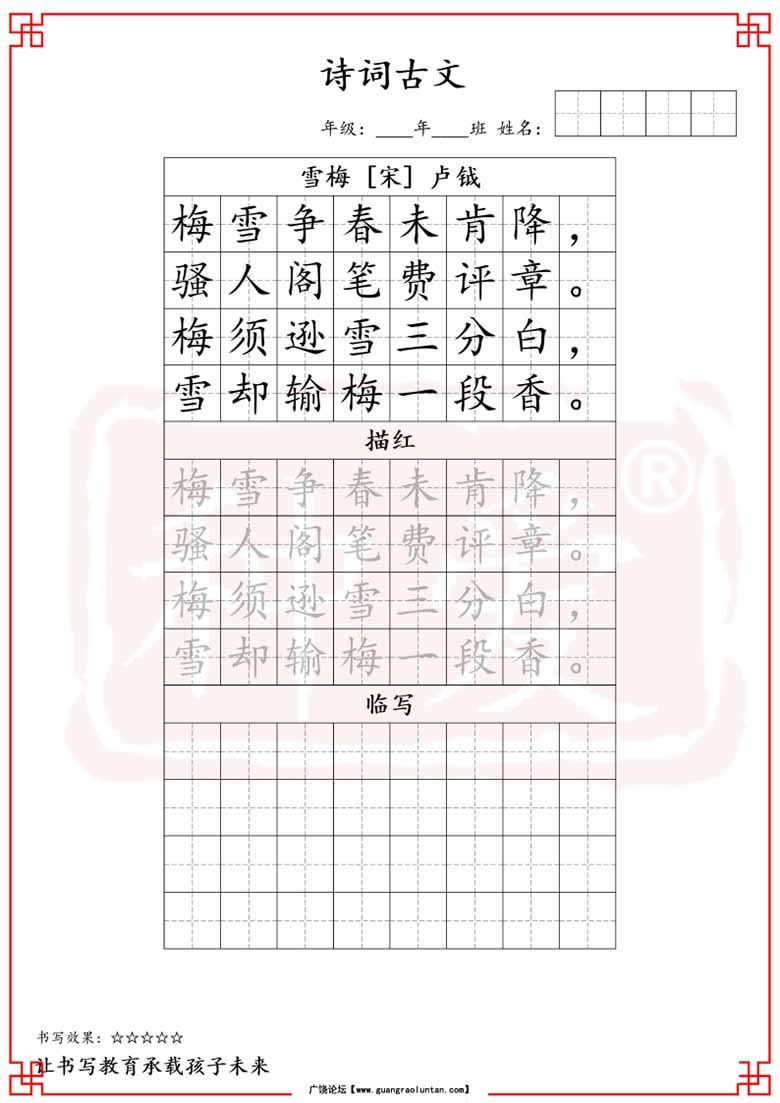 诗词古文
年级：____年____班 姓名：
雪梅［宋］卢钺
梅雪争春未肯降，
骚人阁笔费评章。
梅须逊雪三分白，
雪却输梅一段香。
描红
梅雪争春未肯降，
骚人阁笔费评章。
梅须逊雪三分白，
雪却输梅一段香。
临写
书写效果：☆☆☆☆☆
让书写教育承载孩子未来
广饶论坛【www.guangraoluntan.com】